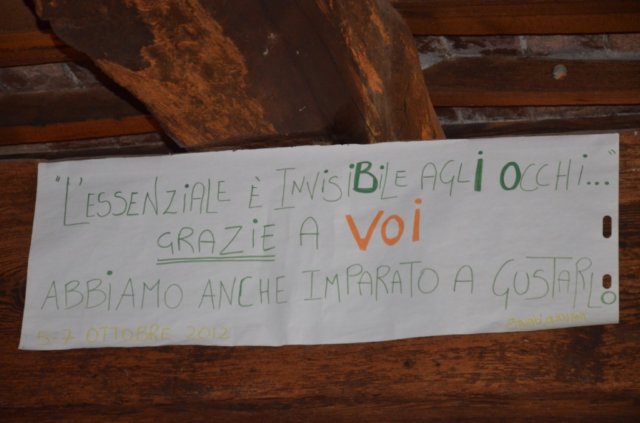 "L'ESSENZIALE È INVISIBILE AGLI OCCHI..."
GRAZIE A VOI
ABBIAMO ANCHE IMPARATO A GUSTARLO
5-7 OTTOBRE 2012